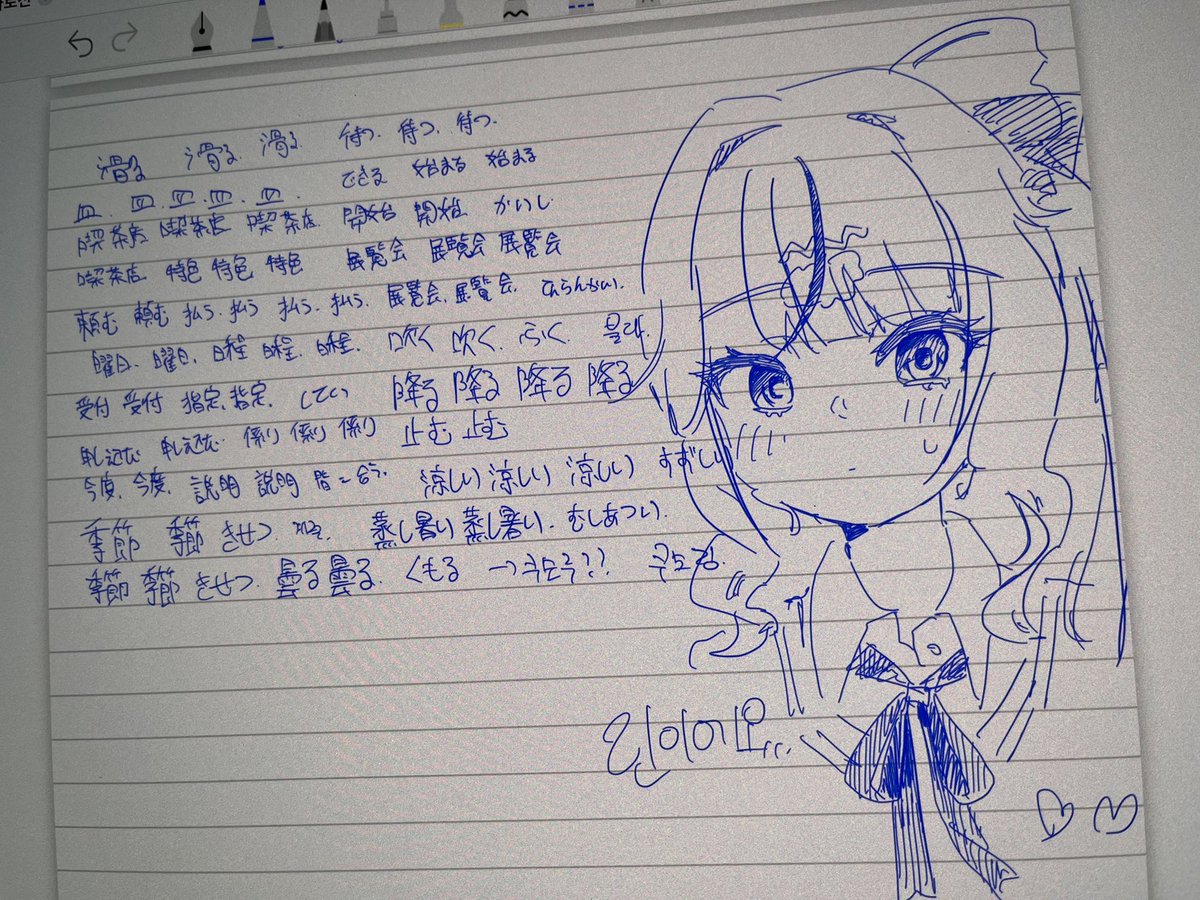 滑る 滑る. 滑る. 待つ. 待つ. 待つ.
皿. 皿. 皿. 皿. 皿. できる 始まる 始まる
喫茶店 喫茶店 喫茶店. 開始 開始 かいし
喫茶店 特色 特色 特色 展覧会 展覧会 展覧会
頼む 頼む 払う. 払う 払う. 払う. 展覧会. 展覧会.
曜日. 曜日. 日程 日程. 日程. 吹く 吹く. ふく.
受付 受付 指定. 指定. してい 降る 降る 降る 降る
申し込む 申し込む 係り 係り 係り 止む 止む
今度. 今度. 説明 説明 涼しい 涼しい 涼しい すずしい
季節 季節 きせつ 蒸し暑い 蒸し暑い. むしあつい.
季節 季節 きせつ. 曇る 曇る. くもる → 쿠모루?? 쿠모링.
린이어요...